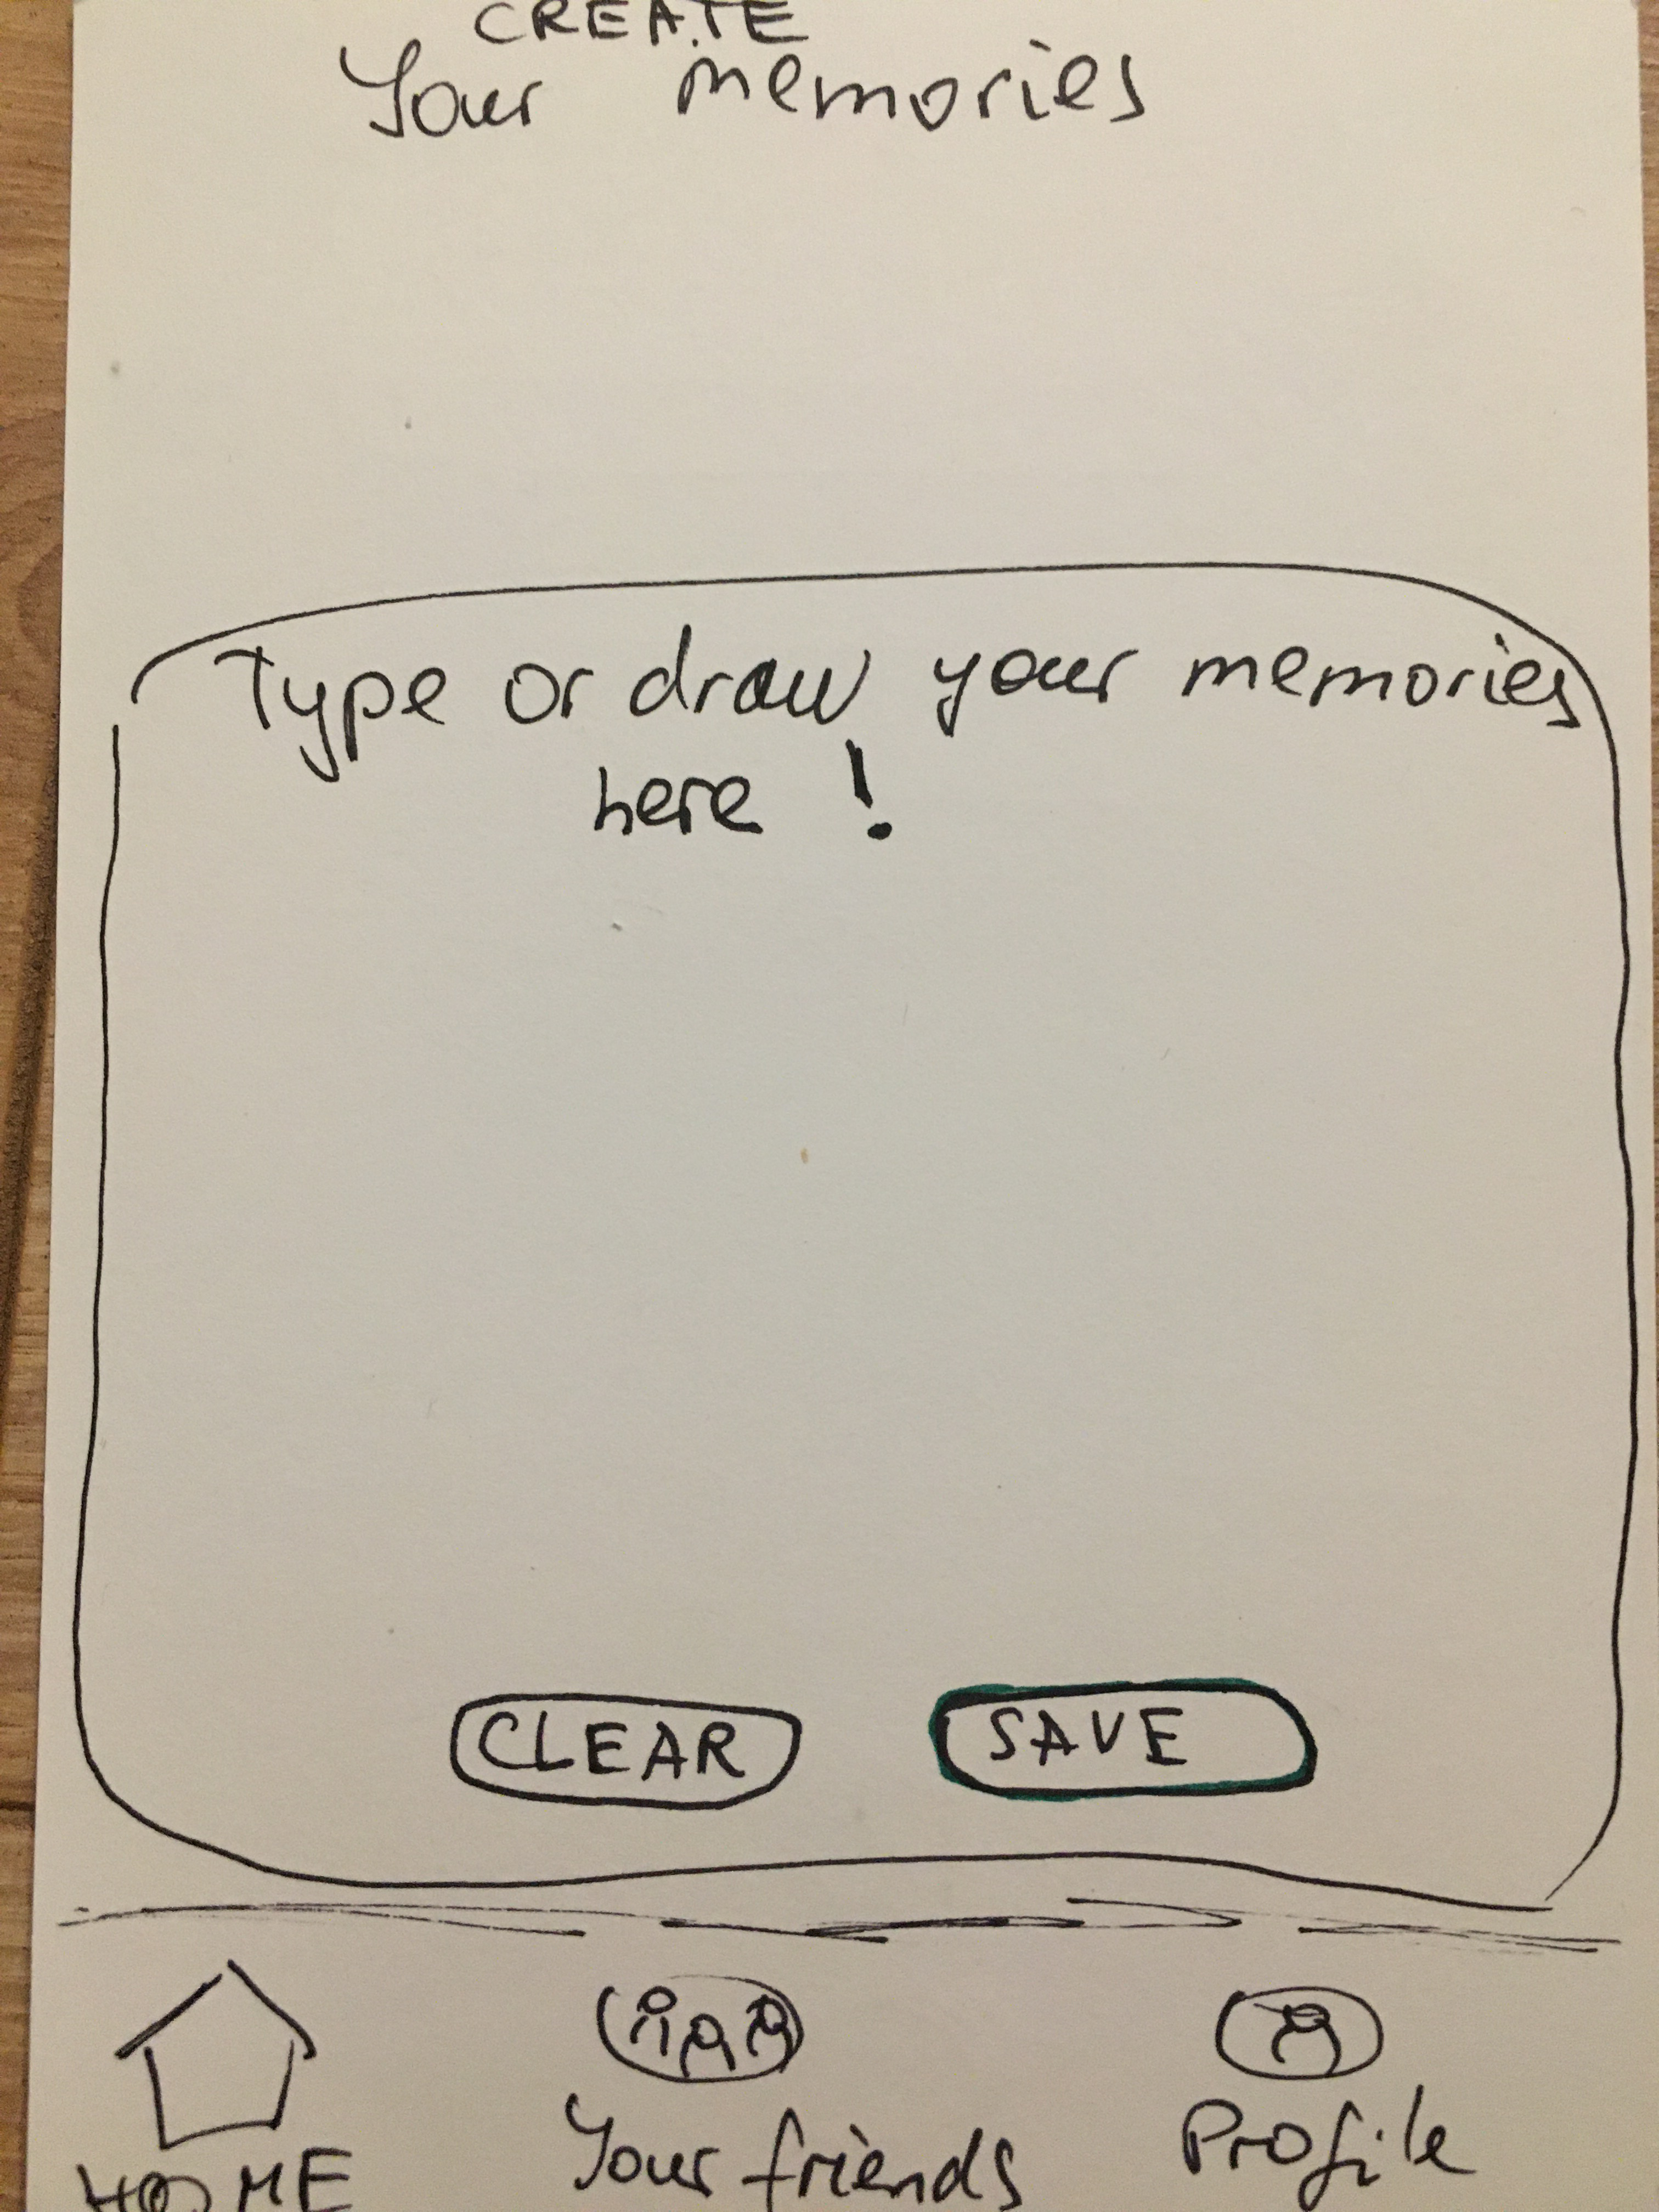 CREATE
Your memories
Type or draw your memories
here !
CLEAR SAVE
HOME Your friends Profile